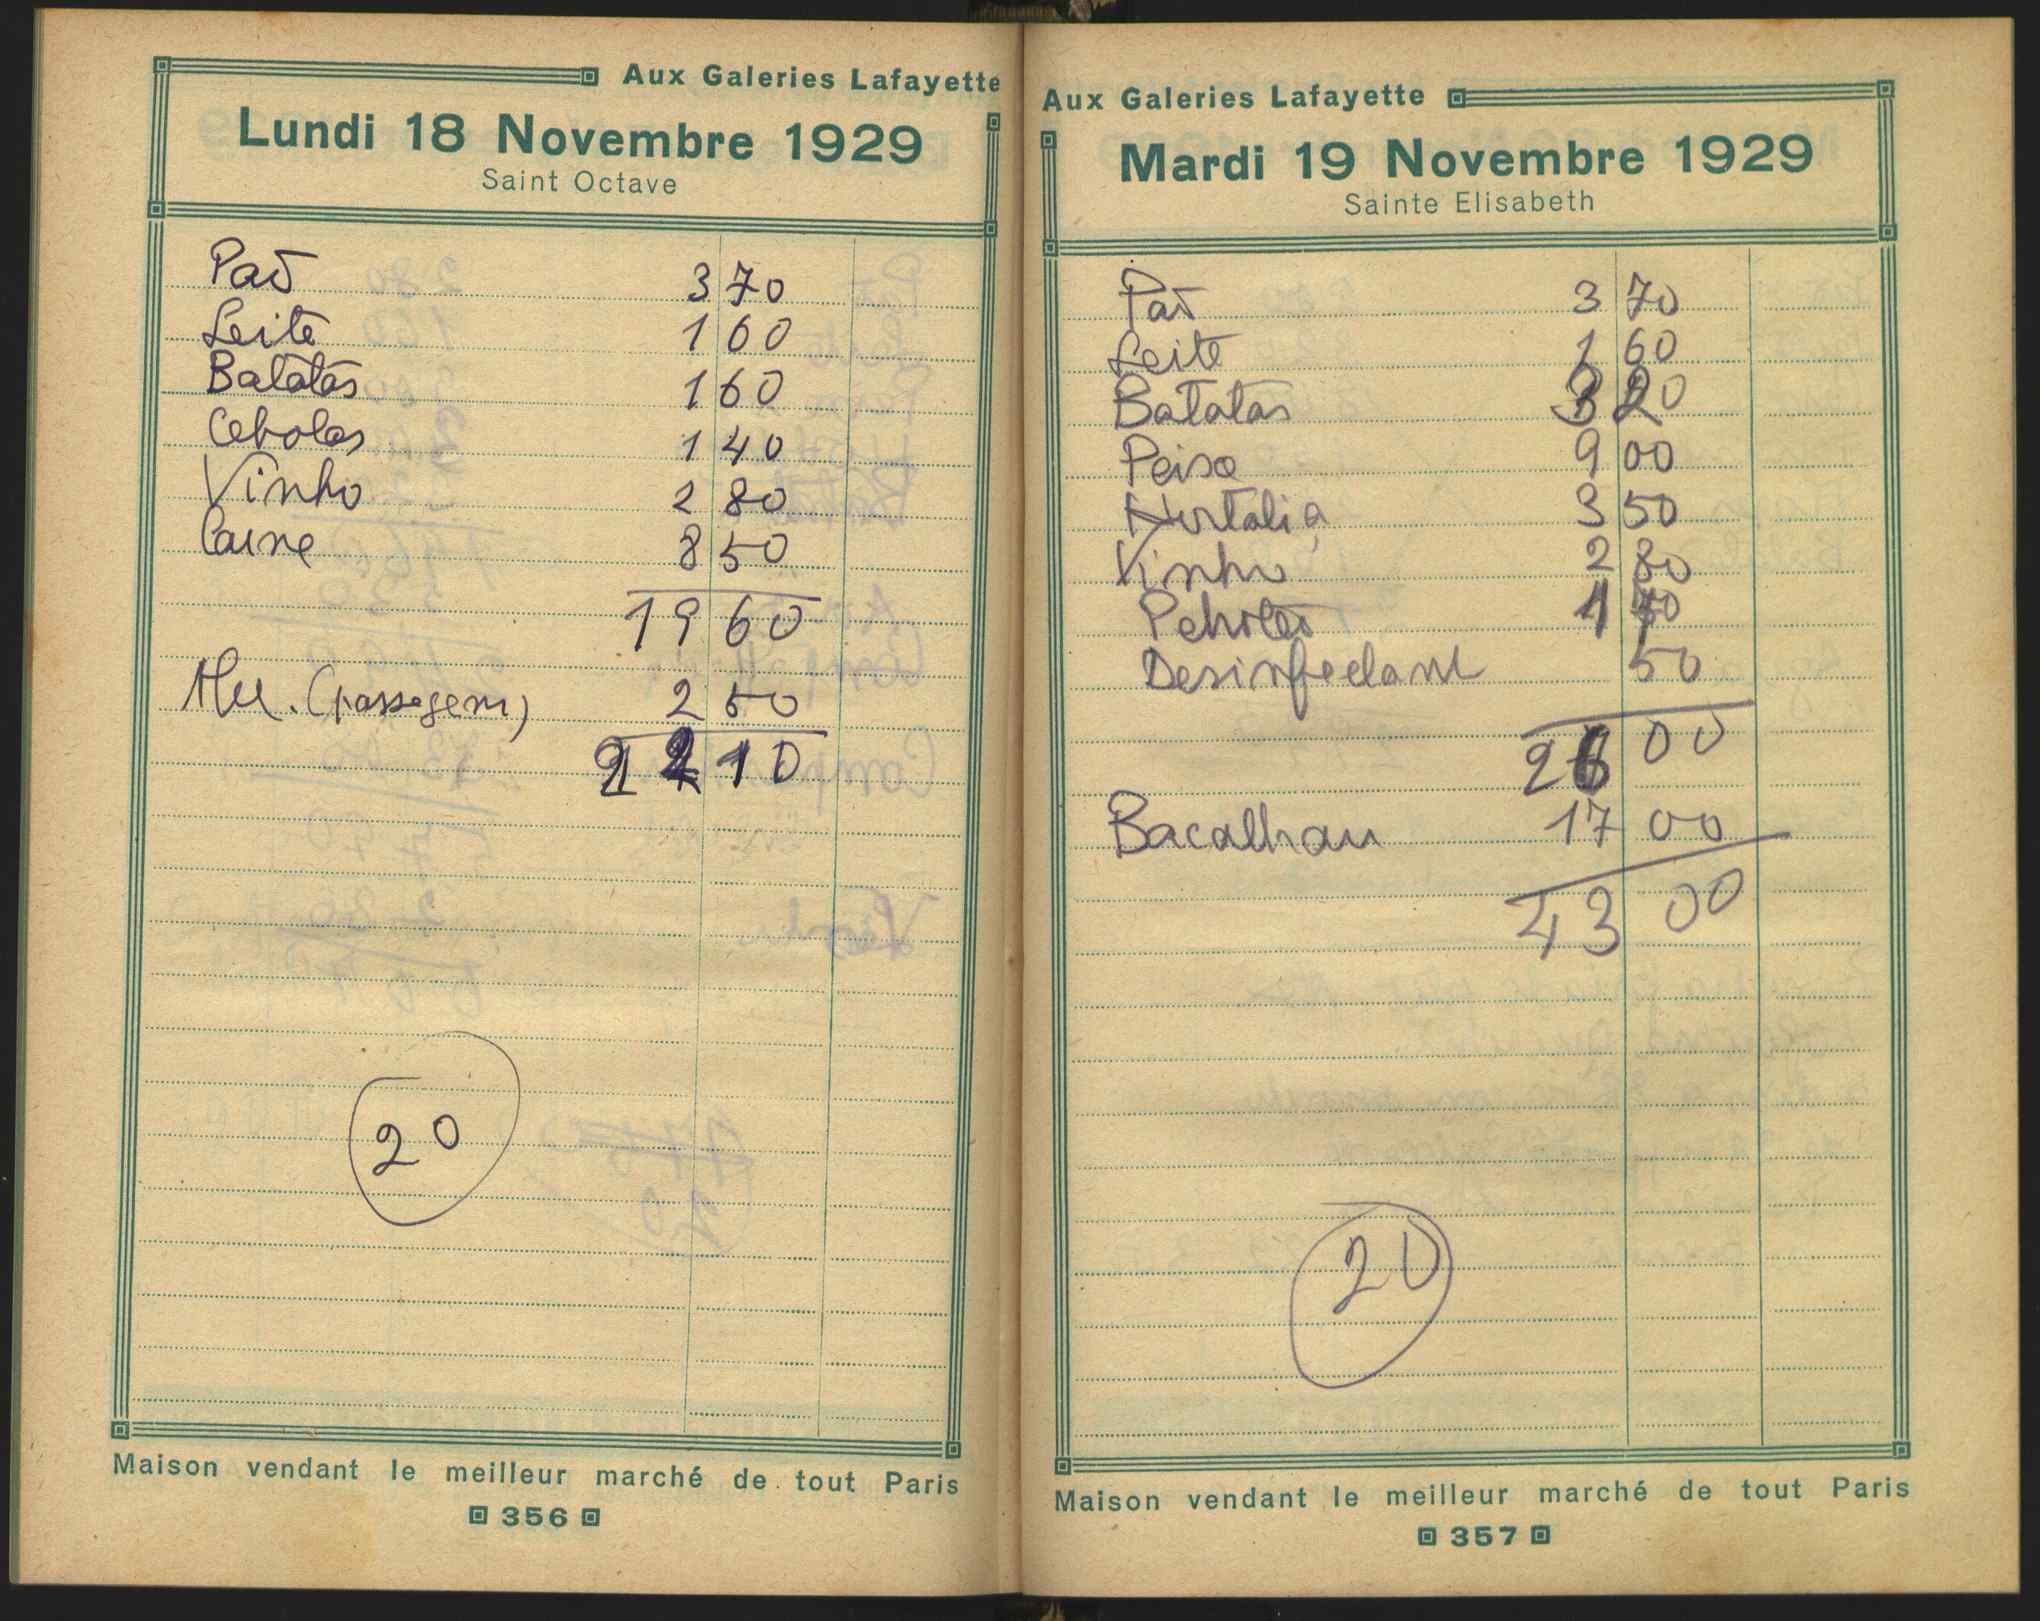 Aux Galeries Lafayette
Lundi 18 Novembre 1929
Saint Octave
Paõ 3 70
Leite 1 60
Batatas 1 60
Cebolas 1 40
Vinho 2 80
Carne 8 50
19 60
(passagem) 2 50
22 10
20
Maison vendant le meilleur marché de tout Paris
356
Aux Galeries Lafayette
Mardi 19 Novembre 1929
Sainte Elisabeth
Paõ 3 70
Leite 1 60
Batatas 3 20
Peixe 9 00
Hortaliça 3 50
Vinho 2 80
1 70
Desinfectant 50
26 00
Bacalhau 17 00
43 00
20
Maison vendant le meilleur marché de tout Paris
357